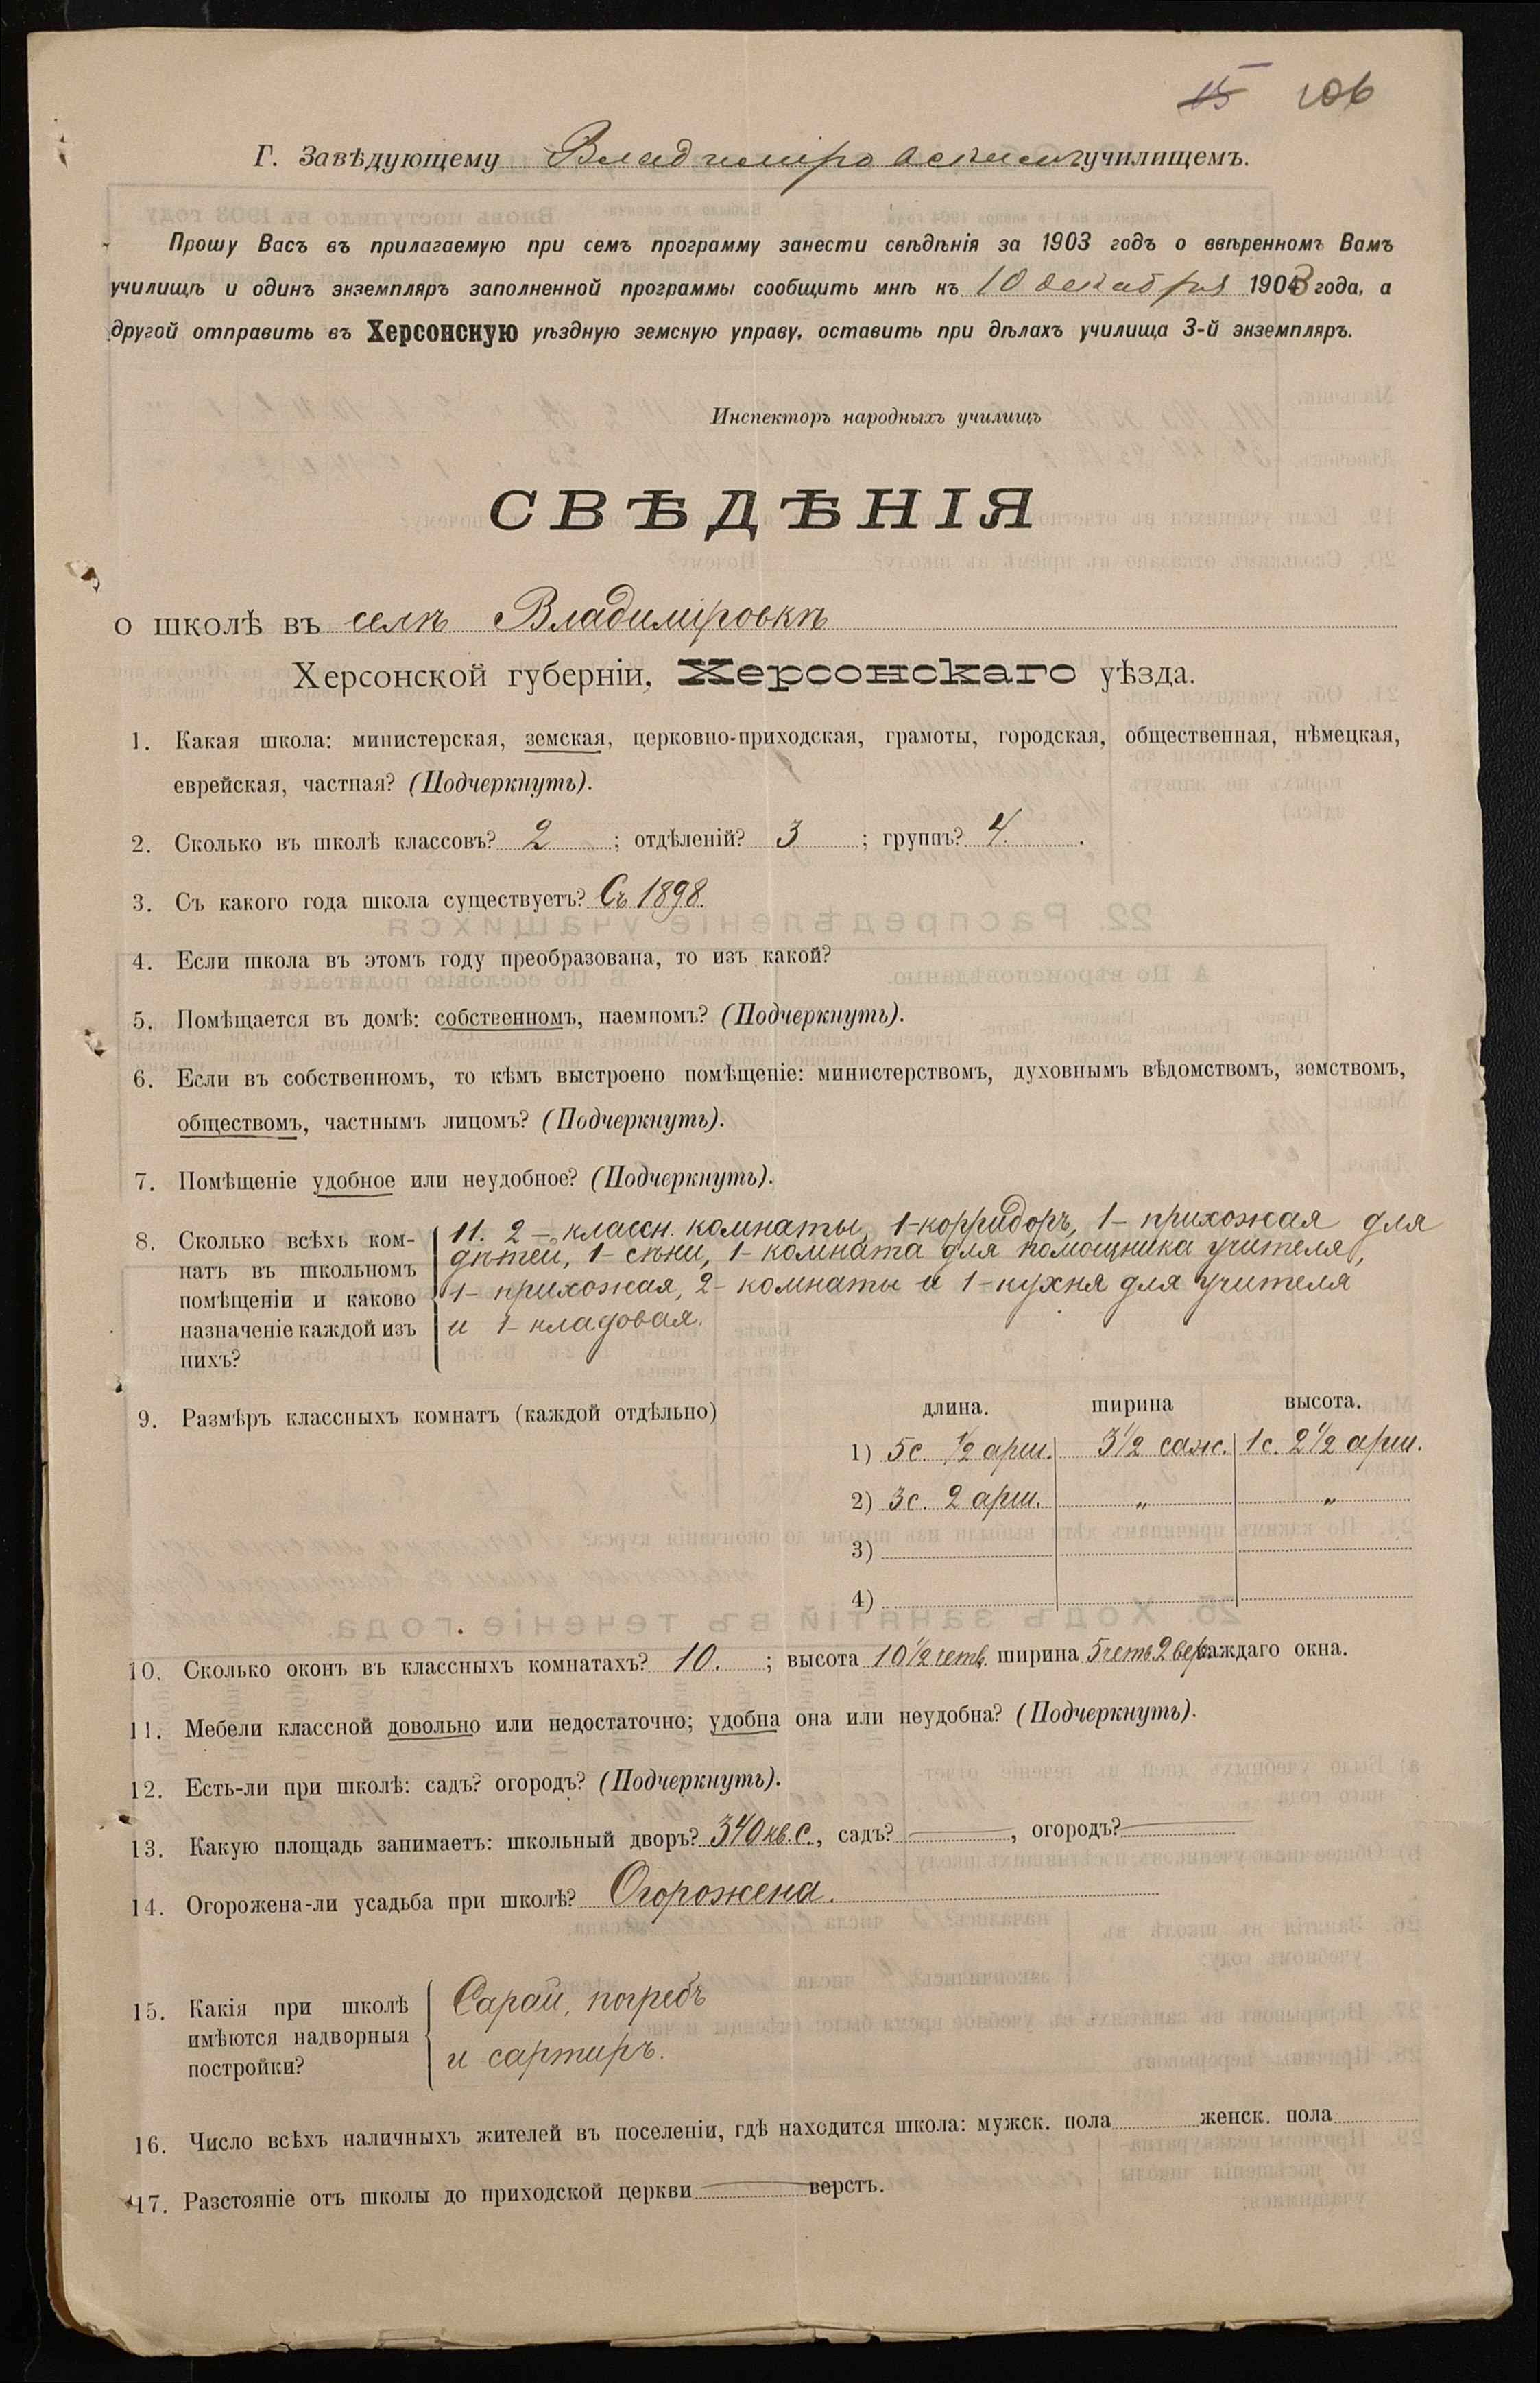 15 106
Г. Завѣдующему Владимировскимъ училищемъ.
Прошу Васъ въ прилагаемую при семъ программу занести свѣдѣнія за 1903 годъ о ввѣренномъ Вамъ
училищѣ и одинъ экземпляръ заполненной программы сообщить мнѣ къ 10 декабря 1903 года, а
другой отправить въ Херсонскую уѣздную земскую управу, оставить при дѣлахъ училища 3-й экземпляръ.
Инспекторъ народныхъ училищъ
СВѢДѢНІЯ
о школѣ въ селѣ Владиміровкѣ
Херсонской губерніи, Херсонскаго уѣзда.
1. Какая школа: министерская, земская, церковно-приходская, грамоты, городская, общественная, нѣмецкая,
еврейская, частная? (Подчеркнуть).
2. Сколько въ школѣ классовъ? 2 ; отдѣленій? 3 ; группъ? 4.
3. Съ какого года школа существуетъ? Съ 1898.
4. Если школа въ этомъ году преобразована, то изъ какой?
5. Помѣщается въ домѣ: собственномъ, наемномъ? (Подчеркнуть).
6. Если въ собственномъ, то кѣмъ выстроено помѣщеніе: министерствомъ, духовнымъ вѣдомствомъ, земствомъ,
обществомъ, частнымъ лицомъ? (Подчеркнуть).
7. Помѣщеніе удобное или неудобное? (Подчеркнуть).
8. Сколько всѣхъ ком-
натъ въ школьномъ
помѣщеніи и каково
назначеніе каждой изъ
нихъ?
11. 2 – классн. комнаты, 1-корридоръ, 1 – прихожая для
дѣтей, 1 – сѣни, 1 – комната для помощника учителя,
1 – прихожая, 2 – комнаты и 1 – кухня для учителя
и 1 – кладовая.
9. Размѣръ классныхъ комнатъ (каждой отдѣльно)
длина. ширина высота.
1) 5с. 1/2 арш. 3 1/2 саж. 1с. 2 1/2 арш.
2) 3с. 2 арш. " "
3)
4)
10. Сколько оконъ въ классныхъ комнатахъ? 10. ; высота 10 1/2 четв. ширина 5 четв. 2 вер. каждаго окна.
11. Мебели классной довольно или недостаточно; удобна она или неудобна? (Подчеркнуть).
12. Есть-ли при школѣ: садъ? огородъ? (Подчеркнуть).
13. Какую площадь занимаетъ: школьный дворъ? 340 кв. с., садъ? —, огородъ? —
14. Огорожена-ли усадьба при школѣ? Огорожена.
15. Какія при школѣ
имѣются надворныя
постройки?
Сарай, погребъ
и сартиръ.
16. Число всѣхъ наличныхъ жителей въ поселеніи, гдѣ находится школа: мужск. пола женск. пола
17. Разстояніе отъ школы до приходской церкви — верстъ.